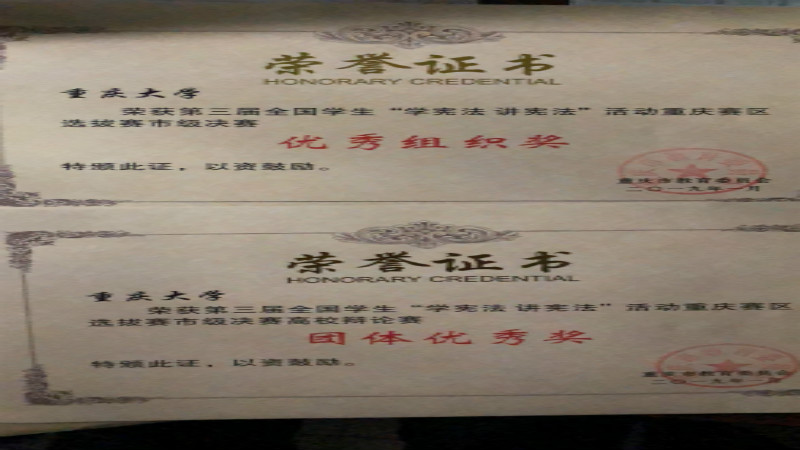 荣誉证书
HONORARY CREDENTIAL
重庆大学
荣获第三届全国学生“学宪法 讲宪法”活动重庆赛区
选拔赛市级决赛
优秀组织奖
特颁此证，以资鼓励。
重庆市教育委员会
二〇一九年 月
荣誉证书
HONORARY CREDENTIAL
重庆大学
荣获第三届全国学生“学宪法 讲宪法”活动重庆赛区
选拔赛市级决赛高校辩论赛
团体优秀奖
特颁此证，以资鼓励。
重庆市教育委员会
二〇一九年 月